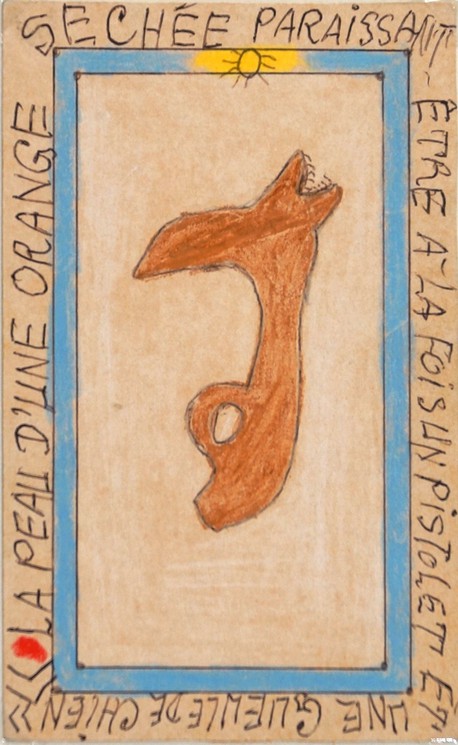 « LA PEAU D'UNE ORANGE
SÉCHÉE PARAISSANT
- ÊTRE A LA FOIS UN PISTOLET ET
UNE GUEULE DE CHIEN »